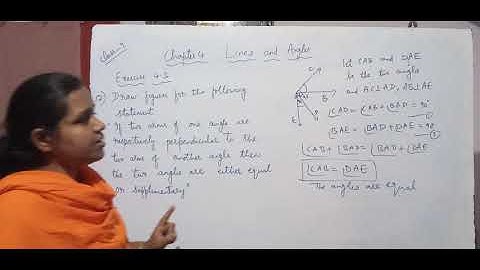 Class-9
Chapter 4 Lines and Angles
Exercise 4.3
2) Draw figures for the following
statement
"If two arms of one angle are
respectively perpendicular to the
two arms of another angle then
the two angles are either equal
or supplementary"
C
D
B
E
let CAB and DAE
be the two angles
and AC⊥AD, AB⊥AE
∠CAD = ∠CAB + ∠BAD = 90°
①
∠BAE = ∠BAD + ∠DAE = 90
②
∠CAB + ∠BAD = ∠BAD + ∠DAE
∠CAB = ∠DAE
The angles are equal